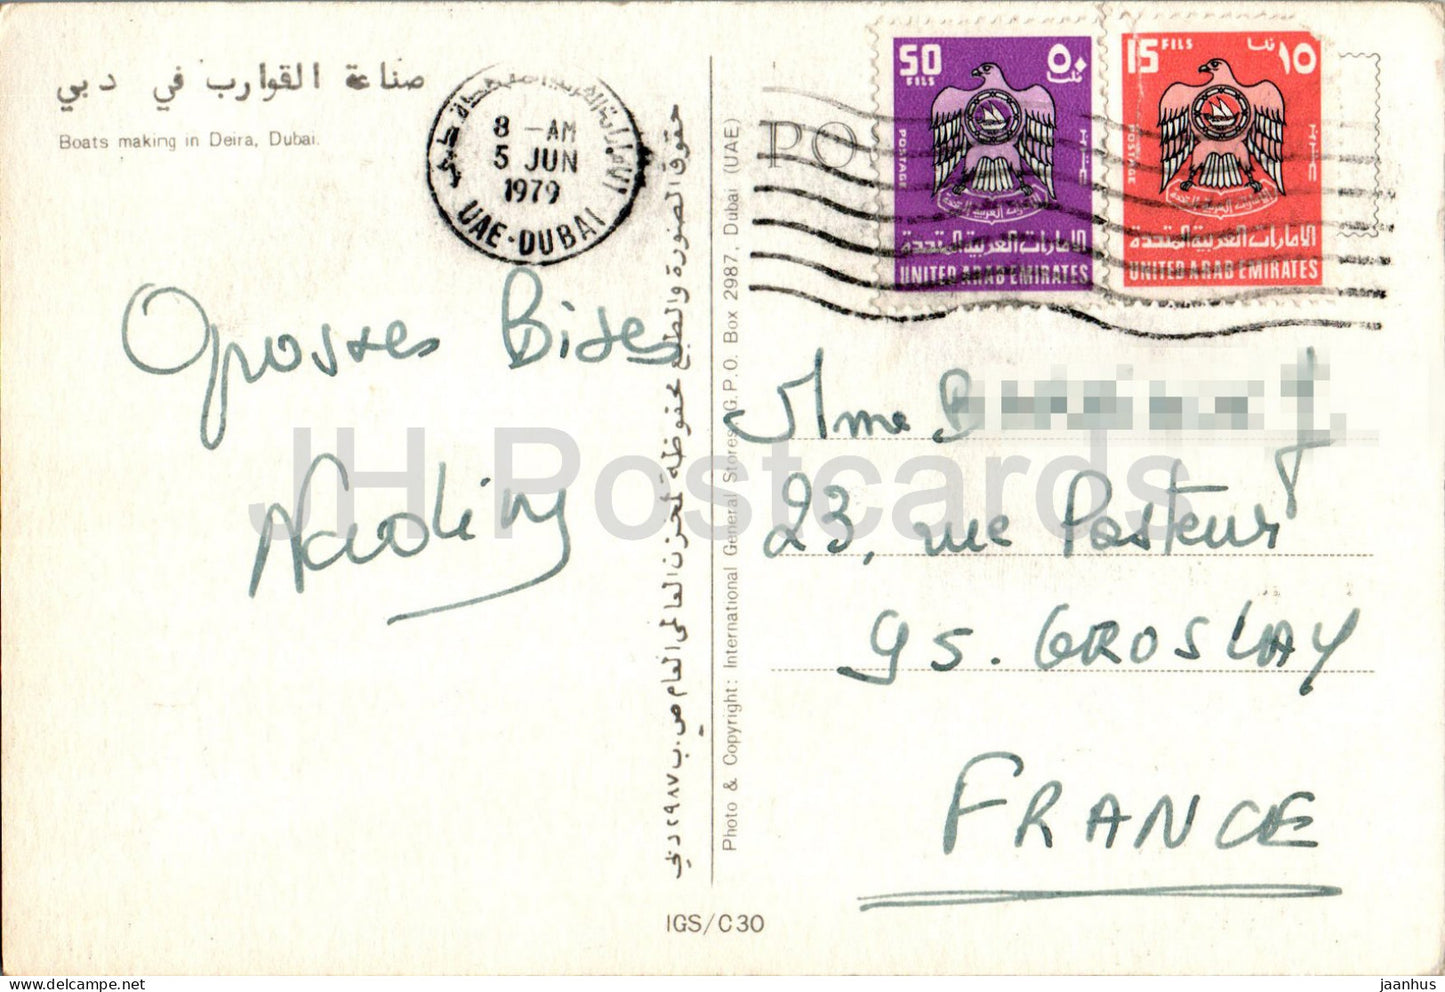 صناعة القوارب في دبي
Boats making in Deira, Dubai.
8 - AM
5 JUN
1979
UAE-DUBAI
50 FILS
٥٠ فلس
POSTAGE
الامارات العربية المتحدة
UNITED ARAB EMIRATES
15 FILS
١٥ فلسا
POSTAGE
الامارات العربية المتحدة
UNITED ARAB EMIRATES
PO
Grosses Bises
حقوق الصورة والطبع محفوظة لمخزن العالمى العام ص.ب ٢٩٨٧ دبي
Photo & Copyright: International General Stores, G.P.O. Box 2987, Dubai (UAE)
Mme B
23, rue Pasteur
95. GROSLAY
FRANCE
IGS/C30
JH Postcards
jaanhus